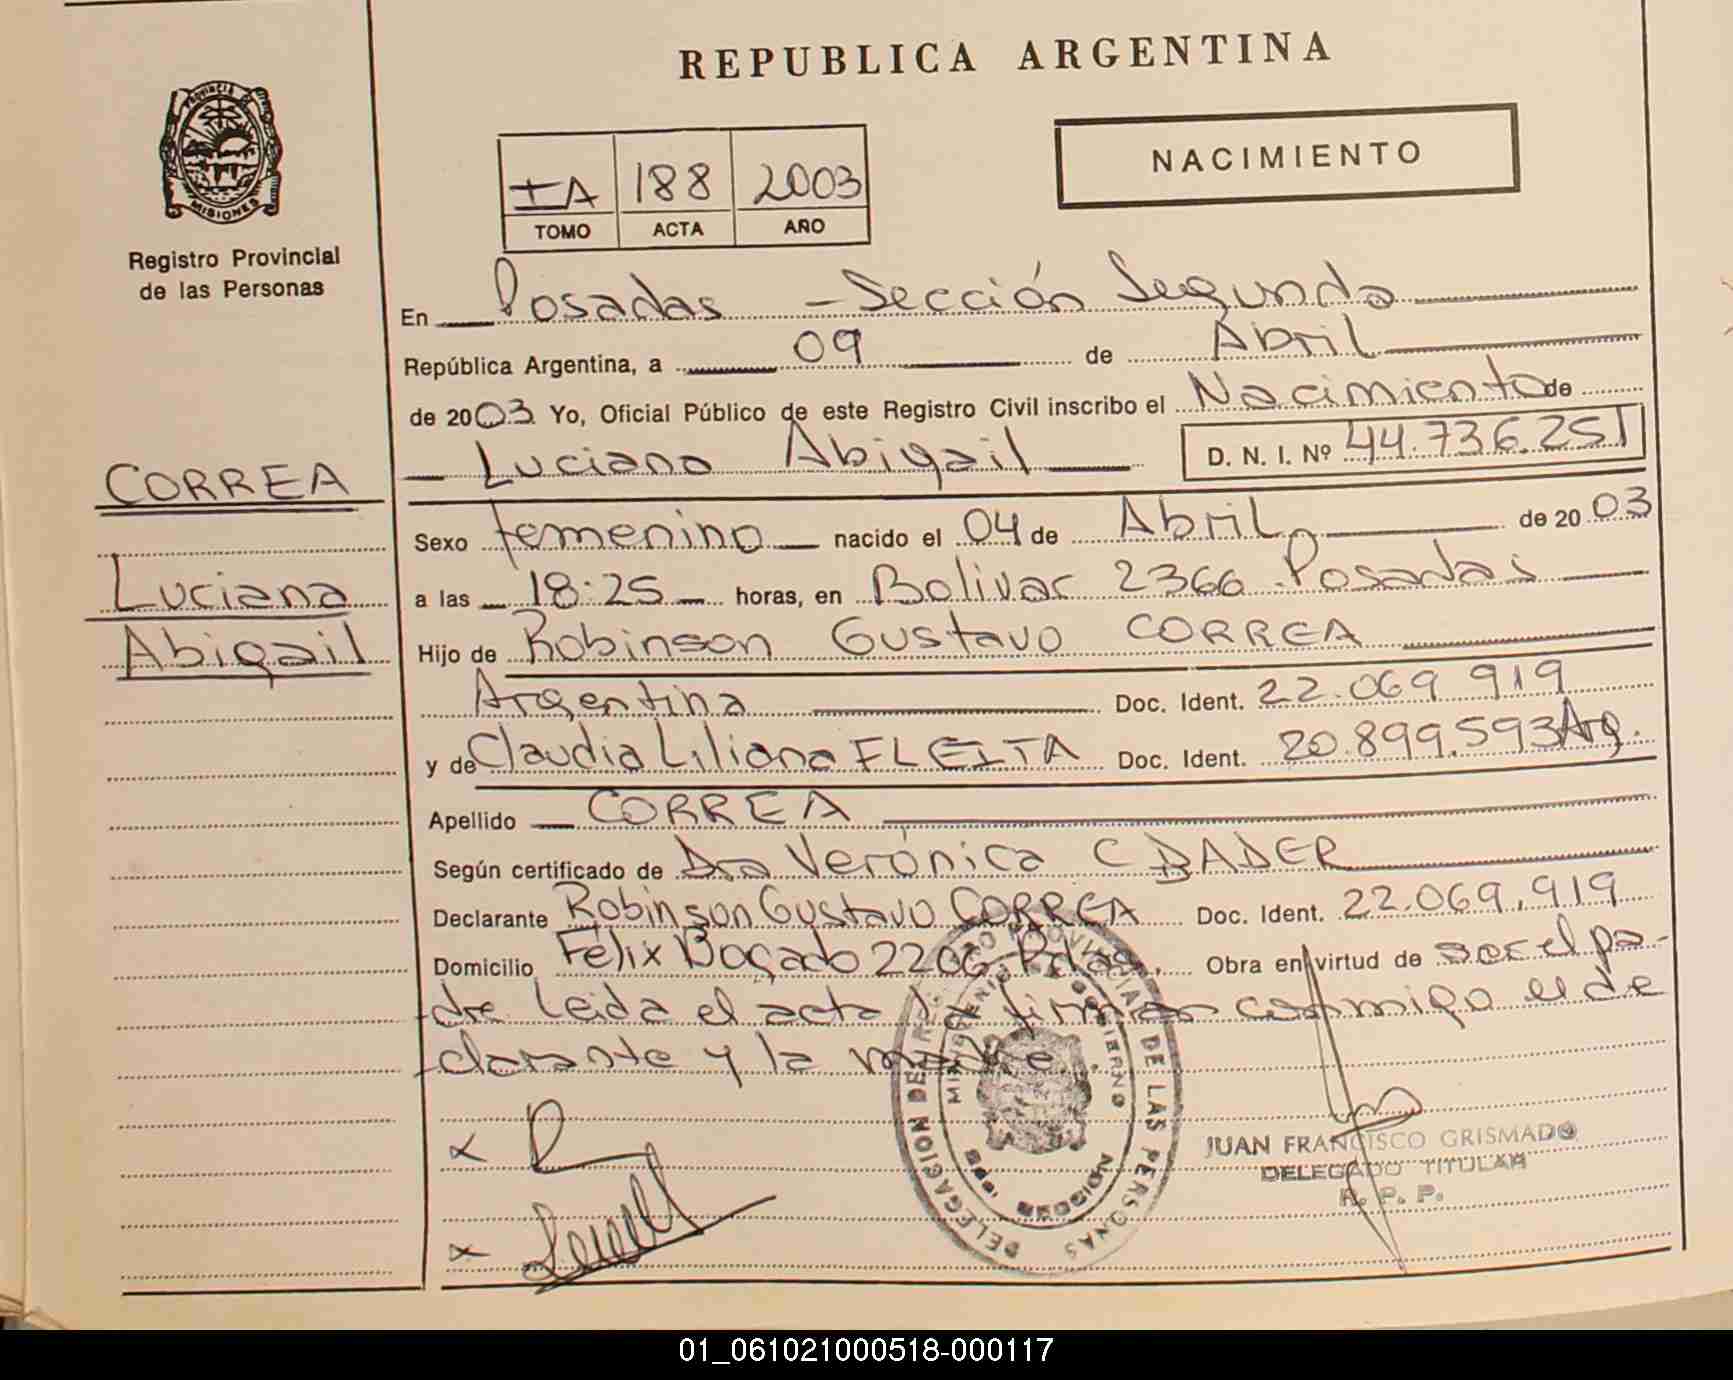 REPUBLICA ARGENTINA
PROVINCIA
MISIONES
Registro Provincial
de las Personas
IA 188 2003
TOMO ACTA AÑO
NACIMIENTO
En Posadas - Sección Segunda
República Argentina, a 09 de Abril
de 2003 Yo, Oficial Público de este Registro Civil inscribo el Nacimiento de
Luciana Abigail D. N. I. Nº 44.736.251
CORREA
Luciana
Abigail
Sexo femenino nacido el 04 de Abril de 2003
a las 18:25 horas, en Bolivar 2366 Posadas
Hijo de Robinson Gustavo CORREA
Argentina Doc. Ident. 22.069 919
y de Claudia Liliana FLEITA Doc. Ident. 20.899.593 Arg.
Apellido CORREA
Según certificado de Dra Verónica C BADER
Declarante Robinson Gustavo CORREA Doc. Ident. 22.069.919
Domicilio Felix Bogado 2206 Pdas. Obra en virtud de ser el pa-
dre Leida el acta la firman conmigo el de
clarante y la madre.
DELEGACION DEL REGISTRO PROVINCIAL DE LAS PERSONAS
MINISTERIO DE GOBIERNO
MISIONES
x
x
JUAN FRANCISCO GRISMADO
DELEGADO TITULAR
R. P. P.
01_061021000518-000117